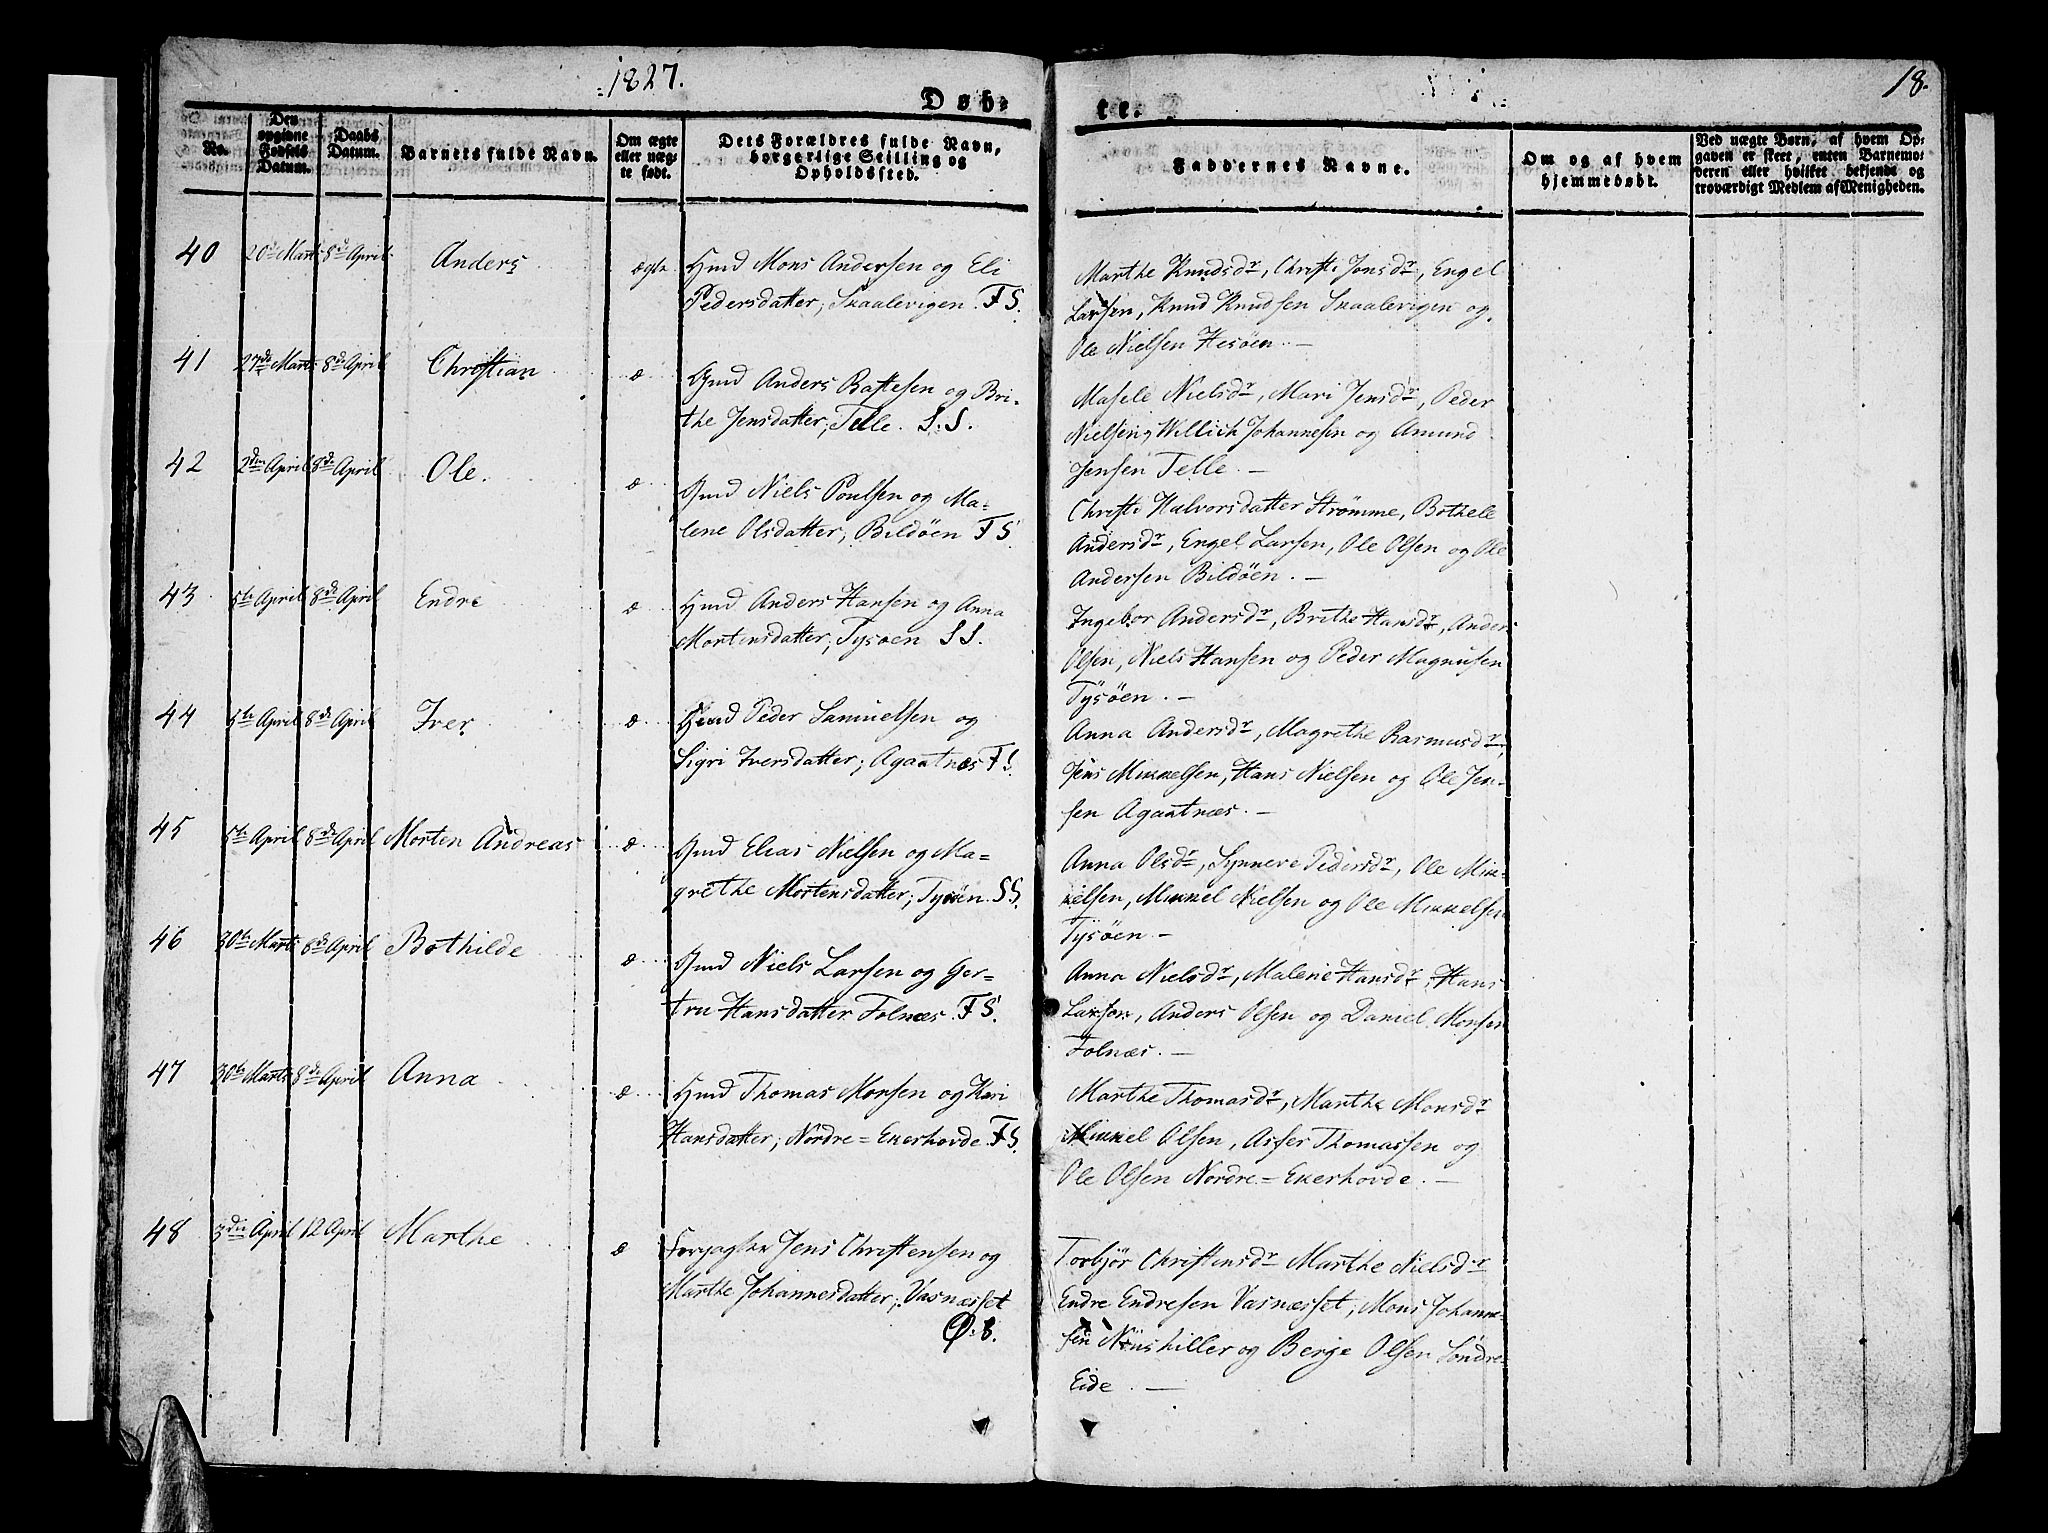 1827.
18.
Døb-
te.
No.
Den opgivne Fødsels Datum.
Daabs Datum.
Barnets fulde Navn.
Om ægte eller uægte født.
Dets Forældres fulde Navn, borgerlige Stilling og Opholdssted.
Faddernes Navne.
Om og af hvem hjemmedøbt.
Ved uægte Børn, af hvem Opgaven er skeet, enten Barnemoderen eller hvilket bekjendt og troværdigt Medlem af Menigheden.
40 20de Marts 8de April Anders ægte Hmd Mons Andersen og Eli
Pedersdatter, Skaalevigen FS.
Marthe Knudsdr, Christi Jonsdr, Engel
Larsen, Knud Knudsen Skaalevigen og
Ole Nielsen Hesøen. —
41 27de Marts 8de April Christian æ Gmd Anders Battesen og Bri-
the Jensdatter, Telle. S.S.
Masele Nielsdr, Mari Jensdr, Peder
Nielsen, Willich Johannesen og Amund
Jensen Telle. —
42 2den April 8de April Ole. æ Gmd Niels Poulsen og Ma-
lene Olsdatter, Bildøen FS
Christi Halvorsdatter Strømme, Bothele
Andersdr, Engel Larsen, Ole Olsen og Ole
Andersen Bildøen. —
43 5te April 8de April Endre æ Hmd Anders Hansen og Anna
Mortensdatter, Tysøen SS.
Ingebor Andersdr, Brithe Hansdr, Anders
Olsen, Niels Hansen og Peder Magnusen
Tysøen. —
44 5te April 8de April Iver æ Hmd Peder Samuelsen og
Sigri Iversdatter, Agaatnæs FS.
Anna Andersdr, Magrethe Rasmusdr,
Jens Mikkelsen, Hans Nielsen og Ole Jen-
sen Agaatnæs. —
45 5te April 8de April Morten Andreas æ Gmd Elias Nielsen og Ma-
grethe Mortensdatter, Tysøen SS.
Anna Olsdr, Synneve Pedersdr, Ole Mik-
kelsen, Mikkel Nielsen og Ole Mikkelsen
Tysøen —
46 30te Marts 8de April Bothilde æ Gmd Niels Larsen og Ger-
tru Hansdatter Folnæs FS.
Anna Nielsdr, Malene Hansdr, Hans
Larsen, Anders Olsen og Daniel Monsen
Folnæs. —
47 30te Marts 8de April Anna æ Hmd Thomas Monsen og Kari
Hansdatter, Nordre=Ekerhovde FS.
Marthe Thomasdr, Marthe Monsdr
Mikkel Olsen, Asser Thomassen og
Ole Olsen Nordre=Ekerhovde. —
48 3die April 12 April Marthe æ Jens Christensen og
Marthe Johannesdatter, Vasnæsset
Marthe Nielsdr
Torbjør Christensdr
Endre Endresen Vasnæsset, Mons Johanne-
sen og Berge Olsen Søndre-
Eide. —